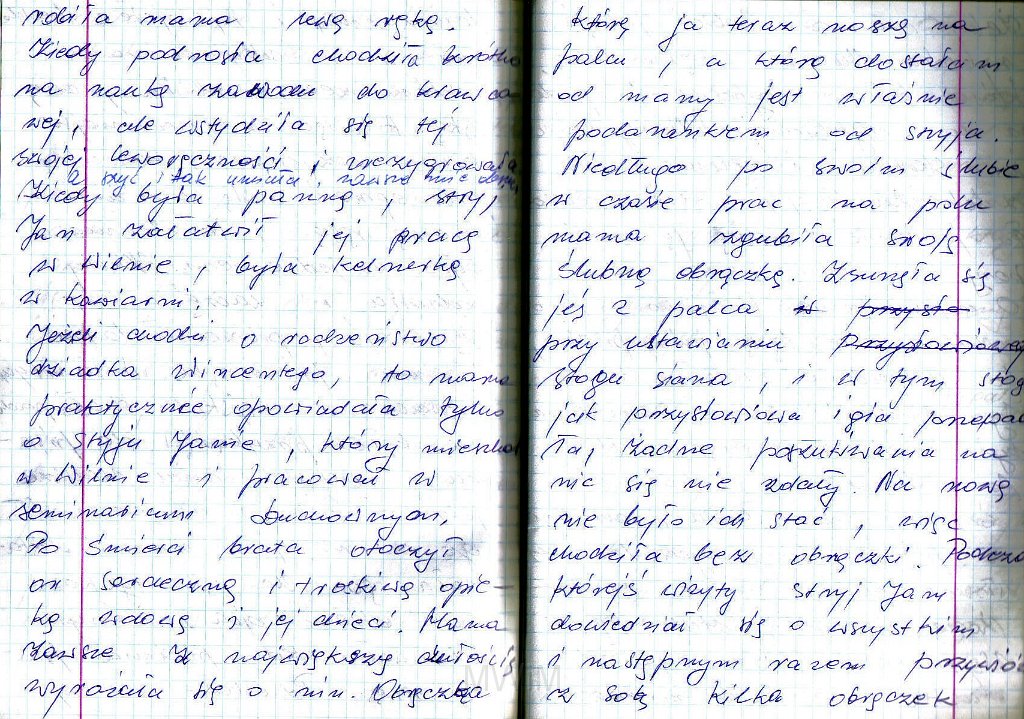 robiła mama lewą ręką.
Kiedy podrosła chodziła krótko
na naukę zawodu do krawco-
wej, ale wstydziła się tej
swojej leworęczności i zrezygnowała.
a szyć i tak umiała, zawsze mnie
Kiedy była panną, stryj
Jan załatwił jej pracę
w Wilnie, była kelnerką
w kawiarni
Jeżeli chodzi o rodzeństwo
dziadka Wincentego, to mama
praktycznie opowiadała tylko
o stryju Janie, który mieszkał
w Wilnie i pracował w
seminarium duchownym.
Po śmierci brata otoczył
on serdeczną i troskliwą opie-
ką wdowę i jej dzieci. Mama
zawsze z największą czułością
wyrażała się o nim. Obrączka
którą ja teraz noszę na
palcu, a którą dostałam
od mamy jest właśnie
podarunkiem od stryja.
Niedługo po swoim ślubie
w czasie prac na polu
mama zgubiła swoją
ślubną obrączkę. Zsunęła się
jej z palca w przysło
przy ustawianiu Przysłowiowej
stogu siana, i w tym stogu
jak przysłowiowa igła przepad
ła, żadne poszukiwania na
nic się nie zdały. Na nową
nie było ich stać, więc
chodziła bez obrączki. Podczas
którejś wizyty stryj Jan
dowiedział się o wszystkim
i następnym razem przywiózł
z sobą kilka obrączek